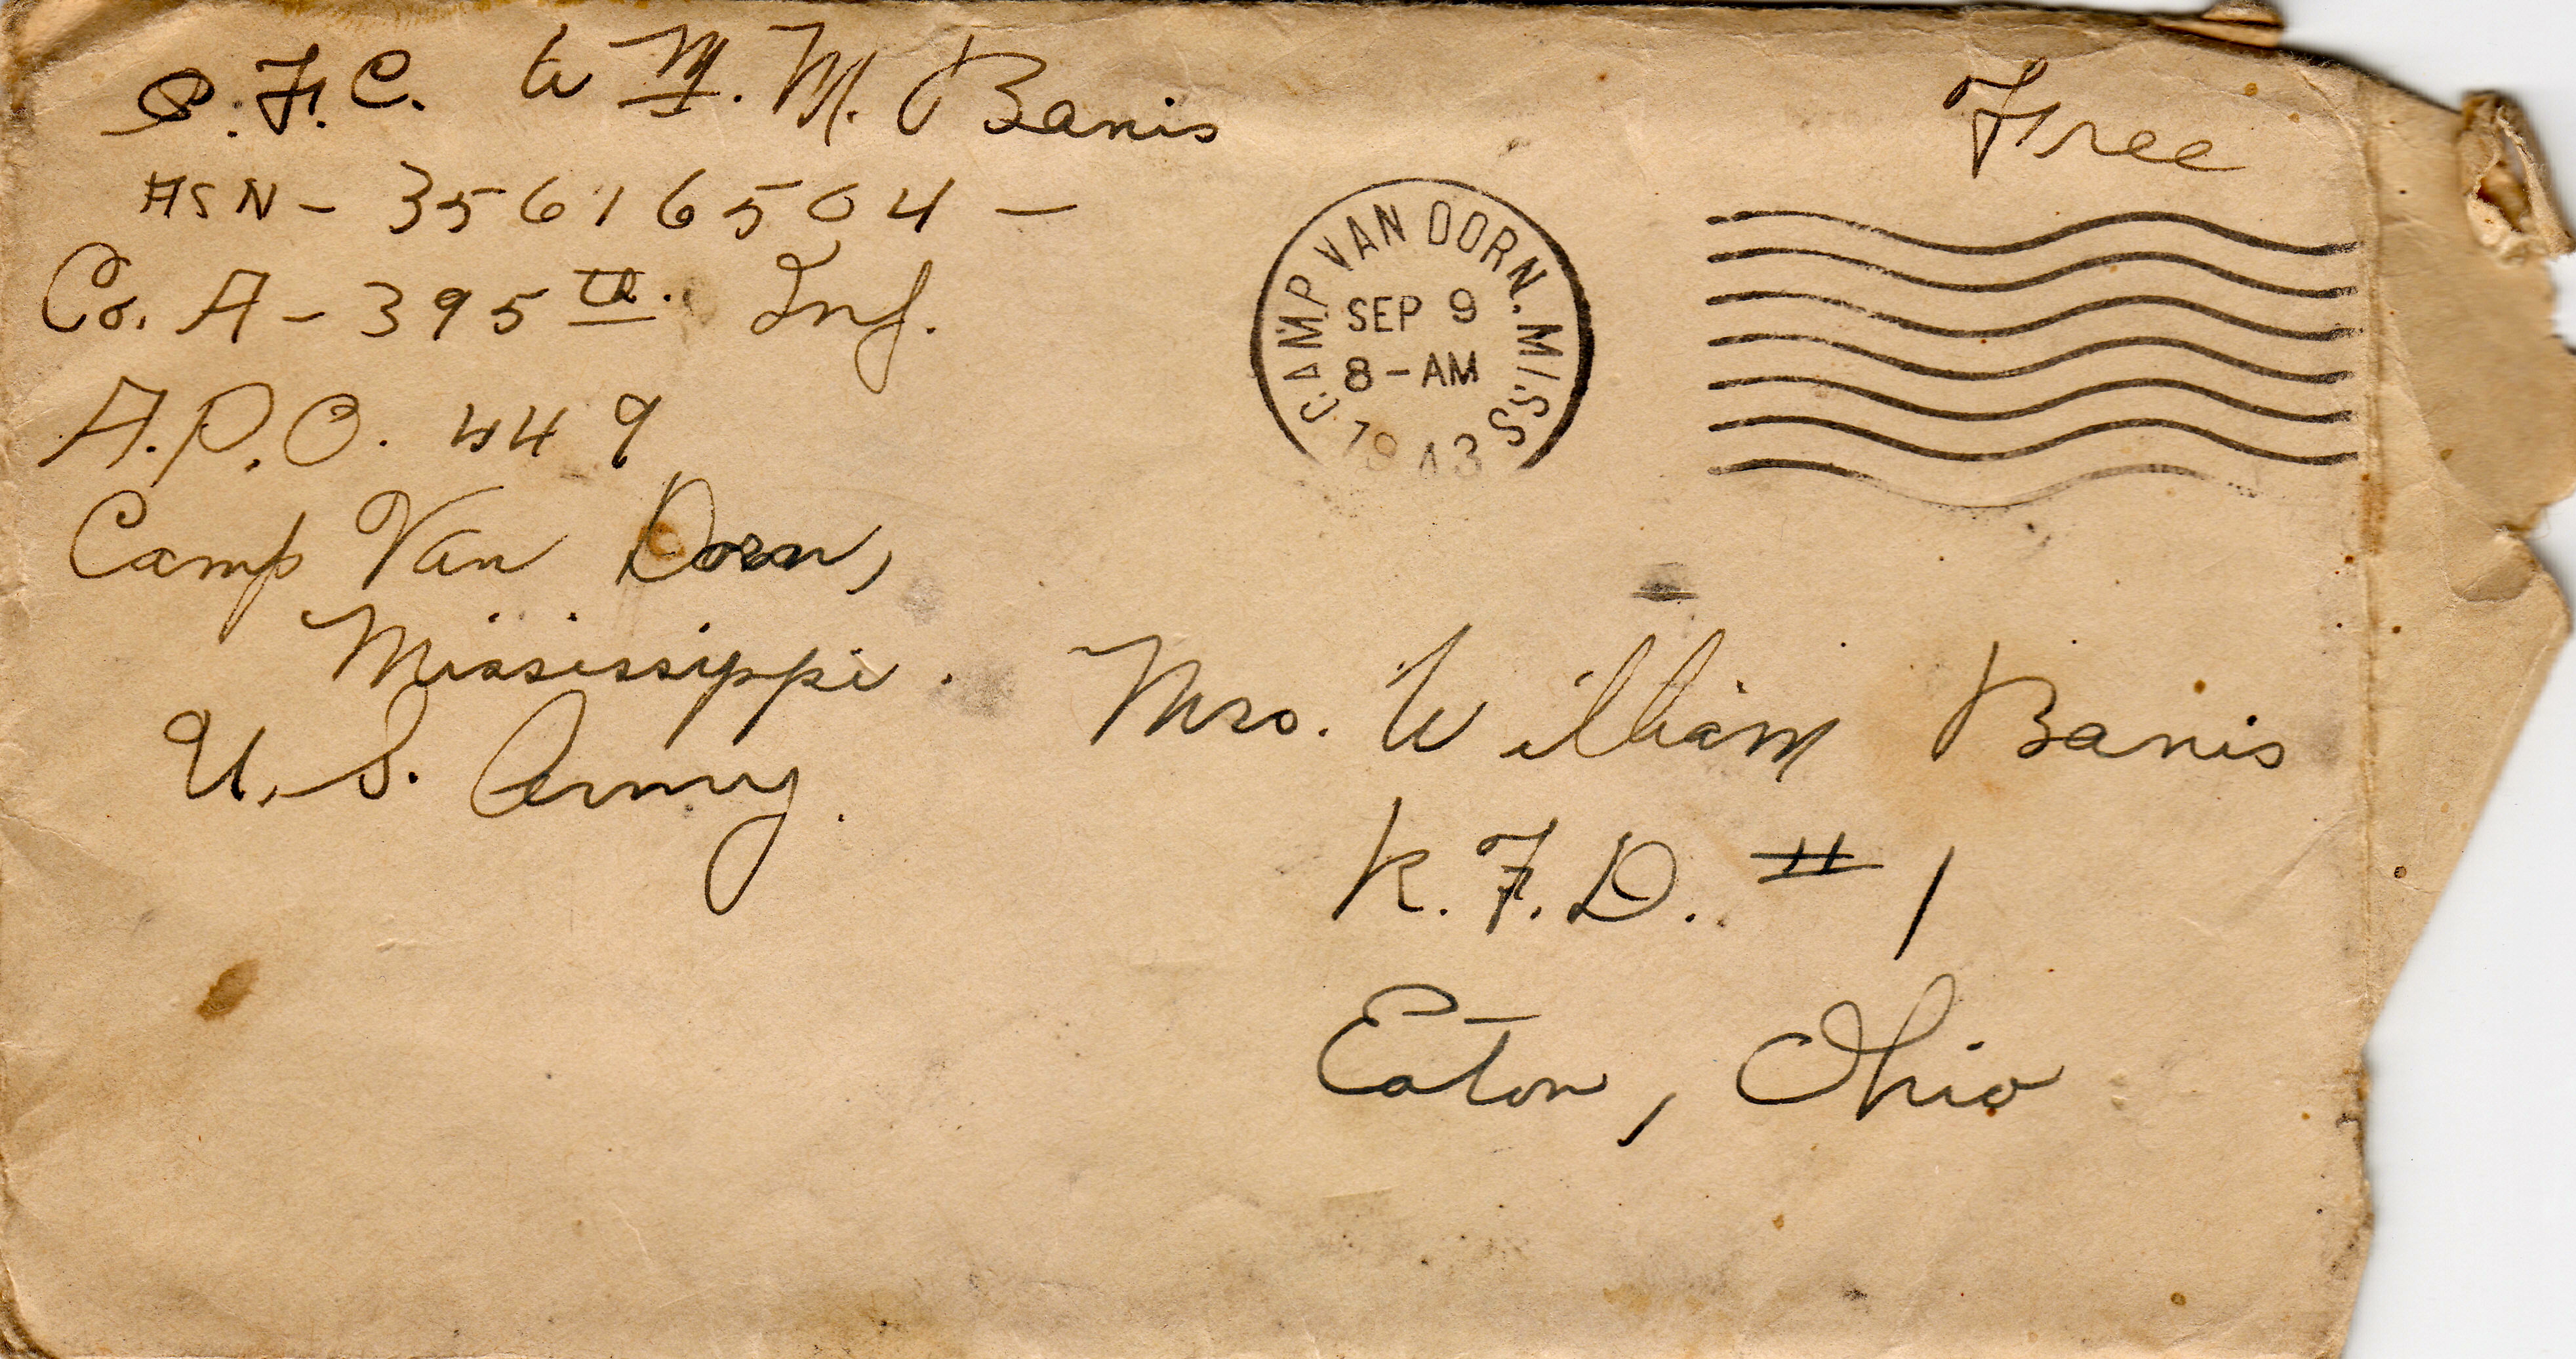 P.F.C. Wm. M. Banis
ASN - 35616504 -
Co. A - 395th. Inf.
A.P.O. 449
Camp Van Dorn,
Mississippi.
U.S. Army.
Free
CAMP VAN DORN. MISS.
SEP 9
8-AM
1943
Mrs. William Banis
R.F.D. # 1
Eaton, Ohio